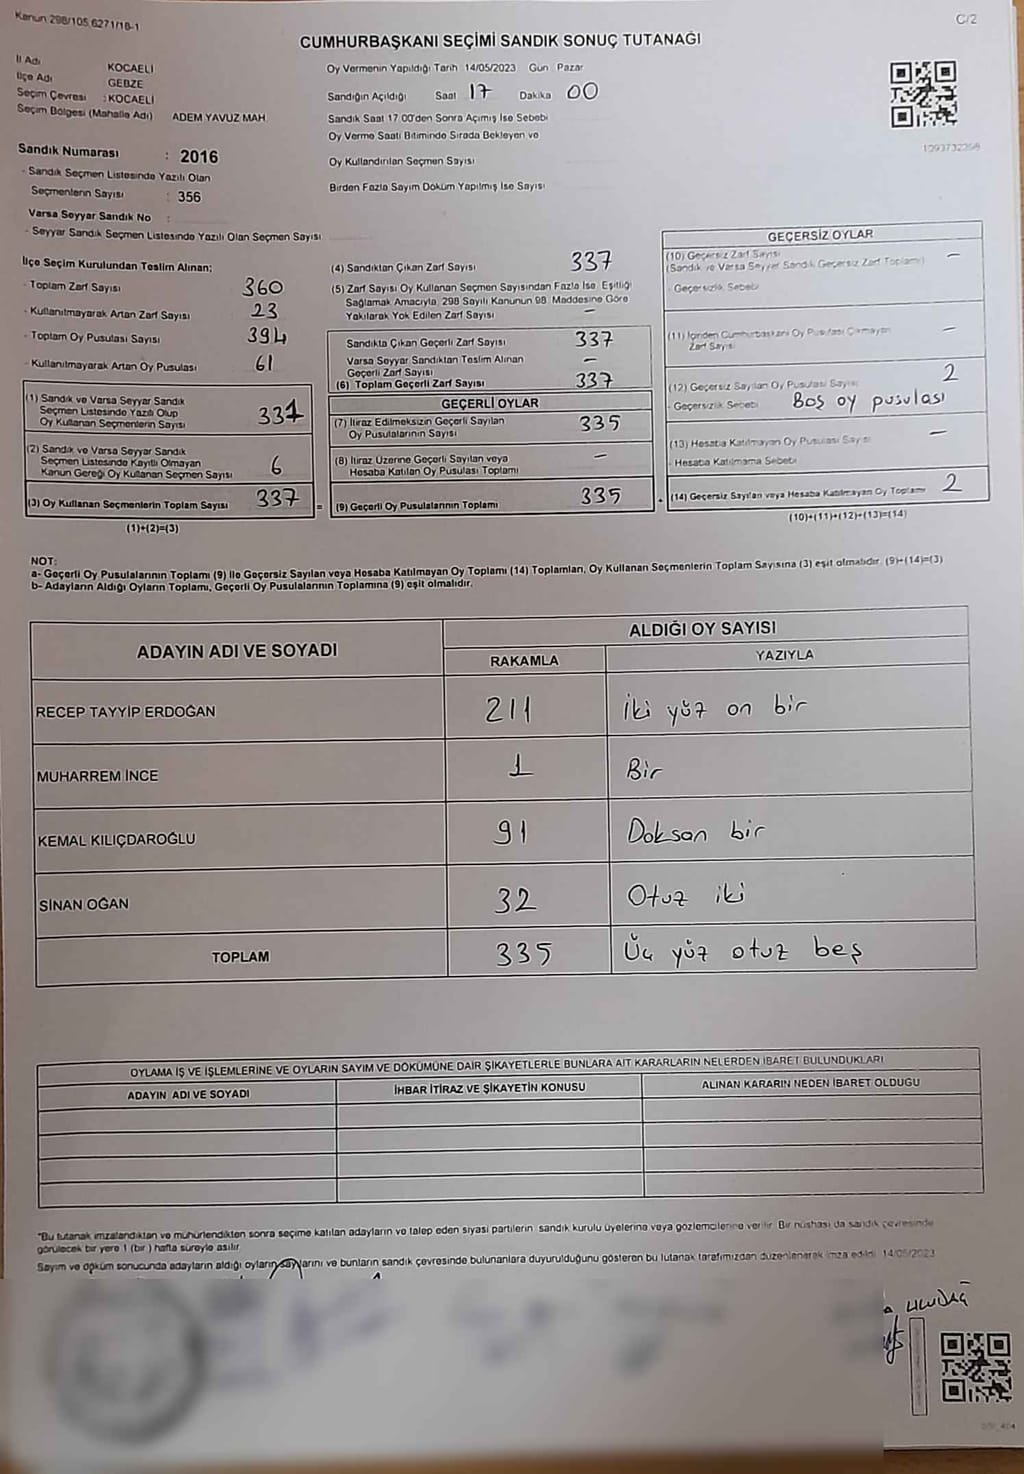 Kanun 298/105,6271/18-1
C/2
CUMHURBAŞKANI SEÇİMİ SANDIK SONUÇ TUTANAĞI
İl Adı KOCAELİ
İlçe Adı GEBZE
Seçim Çevresi : KOCAELİ
Seçim Bölgesi (Mahalle Adı) ADEM YAVUZ MAH.
Sandık Numarası : 2016
- Sandık Seçmen Listesinde Yazılı Olan
Seçmenlerin Sayısı : 356
Varsa Seyyar Sandık No :
- Seyyar Sandık Seçmen Listesinde Yazılı Olan Seçmen Sayısı
Oy Vermenin Yapıldığı Tarih 14/05/2023 Gün Pazar
Sandığın Açıldığı Saat 17 Dakika 00
Sandık Saat 17.00'den Sonra Açımış İse Sebebi
Oy Verme Saati Bitiminde Sırada Bekleyen ve
Oy Kullandırılan Seçmen Sayısı
Birden Fazla Sayım Döküm Yapılmış İse Sayısı
1093732258
İlçe Seçim Kurulundan Teslim Alınan;
- Toplam Zarf Sayısı 360
- Kullanılmayarak Artan Zarf Sayısı 23
- Toplam Oy Pusulası Sayısı 394
- Kullanılmayarak Artan Oy Pusulası 61
(1) Sandık ve Varsa Seyyar Sandık
Seçmen Listesinde Yazılı Olup
Oy Kullanan Seçmenlerin Sayısı 331
(2) Sandık ve Varsa Seyyar Sandık
Seçmen Listesinde Kayıtlı Olmayan
Kanun Gereği Oy Kullanan Seçmen Sayısı 6
(3) Oy Kullanan Seçmenlerin Toplam Sayısı 337
(1)+(2)=(3)
(4) Sandıktan Çıkan Zarf Sayısı 337
(5) Zarf Sayısı Oy Kullanan Seçmen Sayısından Fazla İse, Eşitliği
Sağlamak Amacıyla, 298 Sayılı Kanunun 98. Maddesine Göre
Yakılarak Yok Edilen Zarf Sayısı –
Sandıkta Çıkan Geçerli Zarf Sayısı 337
Varsa Seyyar Sandıktan Teslim Alınan
Geçerli Zarf Sayısı –
(6) Toplam Geçerli Zarf Sayısı 337
GEÇERLİ OYLAR
(7) İtiraz Edilmeksizin Geçerli Sayılan
Oy Pusulalarının Sayısı 335
(8) İtiraz Üzerine Geçerli Sayılan veya
Hesaba Katılan Oy Pusulası Toplamı –
= (9) Geçerli Oy Pusulalarının Toplamı 335
GEÇERSİZ OYLAR
(10) Geçersiz Zarf Sayısı –
(Sandık ve Varsa Seyyar Sandık Geçersiz Zarf Toplamı)
- Geçersizlik Sebebi
(11) İçinden Cumhurbaşkanı Oy Pusulası Çıkmayan –
Zarf Sayısı
(12) Geçersiz Sayılan Oy Pusulası Sayısı 2
- Geçersizlik Sebebi Boş oy pusulası
(13) Hesaba Katılmayan Oy Pusulası Sayısı –
- Hesaba Katılmama Sebebi
+ (14) Geçersiz Sayılan veya Hesaba Katılmayan Oy Toplamı 2
(10)+(11)+(12)+(13)=(14)
NOT:
a- Geçerli Oy Pusulalarının Toplamı (9) ile Geçersiz Sayılan veya Hesaba Katılmayan Oy Toplamı (14) Toplamları, Oy Kullanan Seçmenlerin Toplam Sayısına (3) eşit olmalıdır. (9)+(14)=(3)
b- Adayların Aldığı Oyların Toplamı, Geçerli Oy Pusulalarının Toplamına (9) eşit olmalıdır.
ADAYIN ADI VE SOYADI ALDIĞI OY SAYISI
RAKAMLA YAZIYLA
RECEP TAYYİP ERDOĞAN 211 İki yüz on bir
MUHARREM İNCE 1 Bir
KEMAL KILIÇDAROĞLU 91 Doksan bir
SİNAN OĞAN 32 Otuz iki
TOPLAM 335 Üç yüz otuz beş
OYLAMA İŞ VE İŞLEMLERİNE VE OYLARIN SAYIM VE DÖKÜMÜNE DAİR ŞİKAYETLERLE BUNLARA AİT KARARLARIN NELERDEN İBARET BULUNDUKLARI
ADAYIN ADI VE SOYADI İHBAR İTİRAZ VE ŞİKAYETİN KONUSU ALINAN KARARIN NEDEN İBARET OLDUĞU
"Bu tutanak imzalandıktan ve mühürlendikten sonra seçime katılan adayların ve talep eden siyasi partilerin sandık kurulu üyelerine veya gözlemcilerine verilir. Bir nüshası da sandık çevresinde
görülecek bir yere 1 (bir) hafta süreyle asılır.
Sayım ve döküm sonucunda adayların aldığı oyların sayılarını ve bunların sandık çevresinde bulunanlara duyurulduğunu gösteren bu tutanak tarafımızdan düzenlenerek imza edildi. 14/05/2023